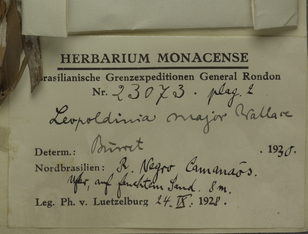 HERBARIUM MONACENSE
Brasilianische Grenzexpeditionen General Rondon
Nr. 23073. plag. 2
Leopoldinia major Wallace
Determ.: Burret . 1930.
Nordbrasilien: R. Negro Camanaós.
Ufer, auf feuchtem Sand. 8m.
Leg. Ph. v. Luetzelburg 24. IX. 1928.